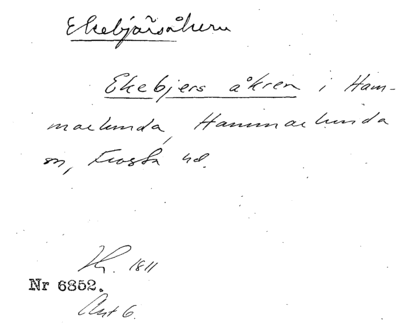 Ekebjärsåkern
Ekebjers åkren i Ham-
marlunda, Hammarlunda
sn, Frosta hd.
1811
Nr 6852.
Akt 6.